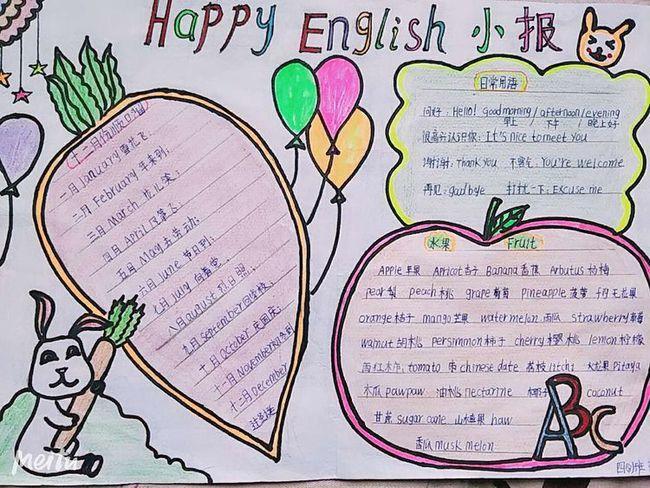 Happy English 小报
日常用语
问好: Hello! good morning / afternoon / evening
早上 下午 晚上好
很高兴认识你: It's nice to meet you
谢谢: Thank you 不客气: You're welcome
再见: goodbye 打扰一下: Excuse me
一月 January 雪花飞
二月 February
三月 March
四月 April
五月 May 去劳动
六月 June 节日到
七月 july
八月 august
九月 September 回学校
十月 October
十一月 November
十二月 December
水果 Fruit
Apple 苹果 Apricot 杏子 Banana 香蕉 Arbutus 杨梅
pear 梨 peach 桃 grape 葡萄 Pineapple 菠萝 无花果
orange 桔子 mango 芒果 watermelon 西瓜 strawberry 草莓
walnut 胡桃 Persimmon 柿子 cherry 樱桃 lemon 柠檬
西红柿 tomato 枣 chinese date 荔枝 litchi 火龙果 Pitaya
木瓜 pawpaw 油桃 nectarine 椰子 coconut
甘蔗 sugar cane 山楂果 haw
香瓜 musk melon
ABC
Meitu